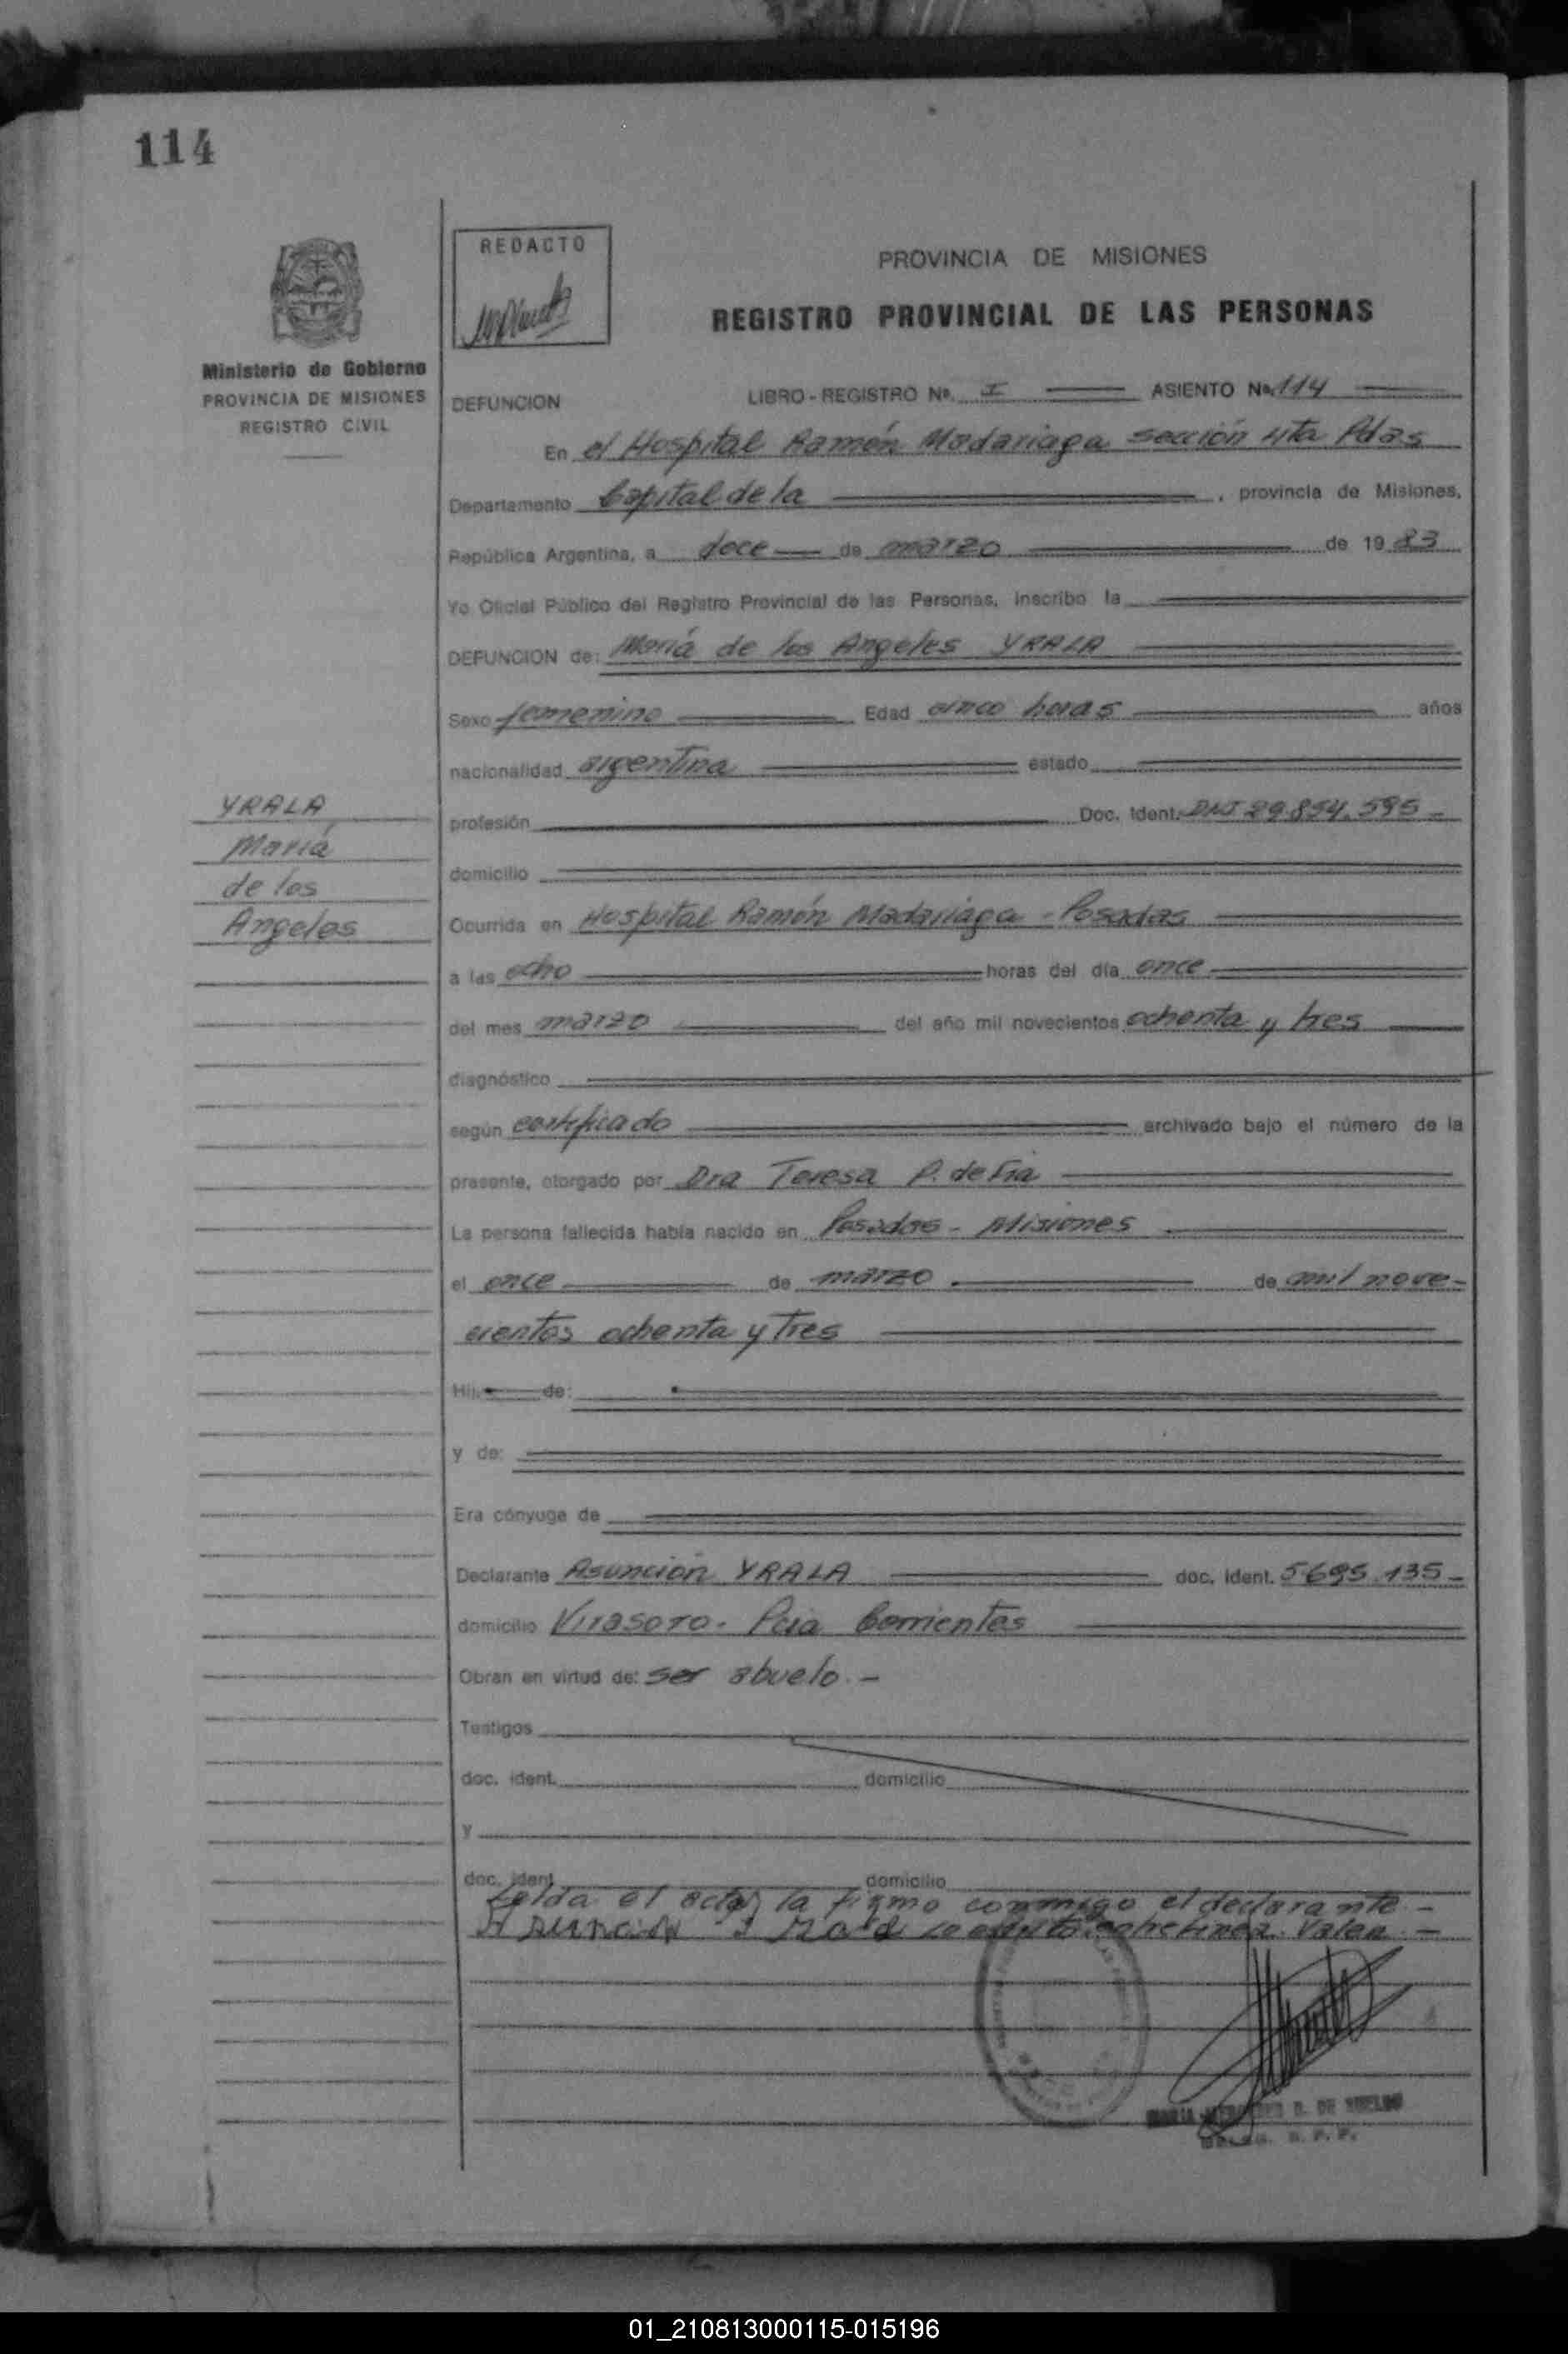 114
REDACTO
PROVINCIA DE MISIONES
REGISTRO PROVINCIAL DE LAS PERSONAS
Ministerio de Gobierno
PROVINCIA DE MISIONES
REGISTRO CIVIL
DEFUNCION LIBRO - REGISTRO Nº. I ASIENTO Nº. 114
En el Hospital Ramón Madariaga sección 4ta Pdas
Departamento Capital de la , provincia de Misiones,
República Argentina, a doce de marzo de 19 83
Yo Oficial Público del Registro Provincial de las Personas, inscribo la
DEFUNCION de: María de los Angeles YRALA
Sexo femenino Edad cinco horas años
nacionalidad argentina estado
YRALA
María
de los
Angeles
profesión Doc. Ident. DNI 29.854.595 -
domicilio
Ocurrida en Hospital Ramón Madariaga - Posadas
a las ocho horas del día once
del mes marzo del año mil novecientos ochenta y tres
diagnóstico
según certificado archivado bajo el número de la
presente, otorgado por Dra Teresa P. de
La persona fallecida había nacido en Posadas - Misiones
el once de marzo de mil nove-
cientos ochenta y tres
Hij de:
y de:
Era cónyuge de
Declarante Asunción YRALA doc. ident. 5.695.135 -
domicilio Virasoro. Pcia Corrientes
Obran en virtud de: ser abuelo. -
Testigos
doc. ident. domicilio
y
doc. ident. domicilio
Leida el acta la firma conmigo el declarante -
Valen. -
MARIA MERCEDES D. DE
01_210813000115-015196